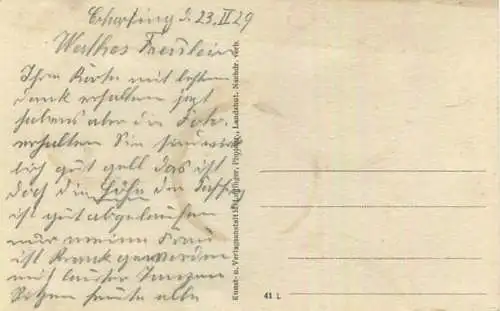 Echarfing d. 23.II 29
Werthes Fräulein
Ihre Karte mit besten
dank erhalten jezt
habens aber die Foto
erhalten Sie sind
lich gut gell das ist
doch die der
ist gut abgelaufen
nur meine Frau
ist krank geworden
mit lauter Tanzen
heute alle
Kunst- u. Verlagsanstalt Landshut. Nachdr. verb.
41 L